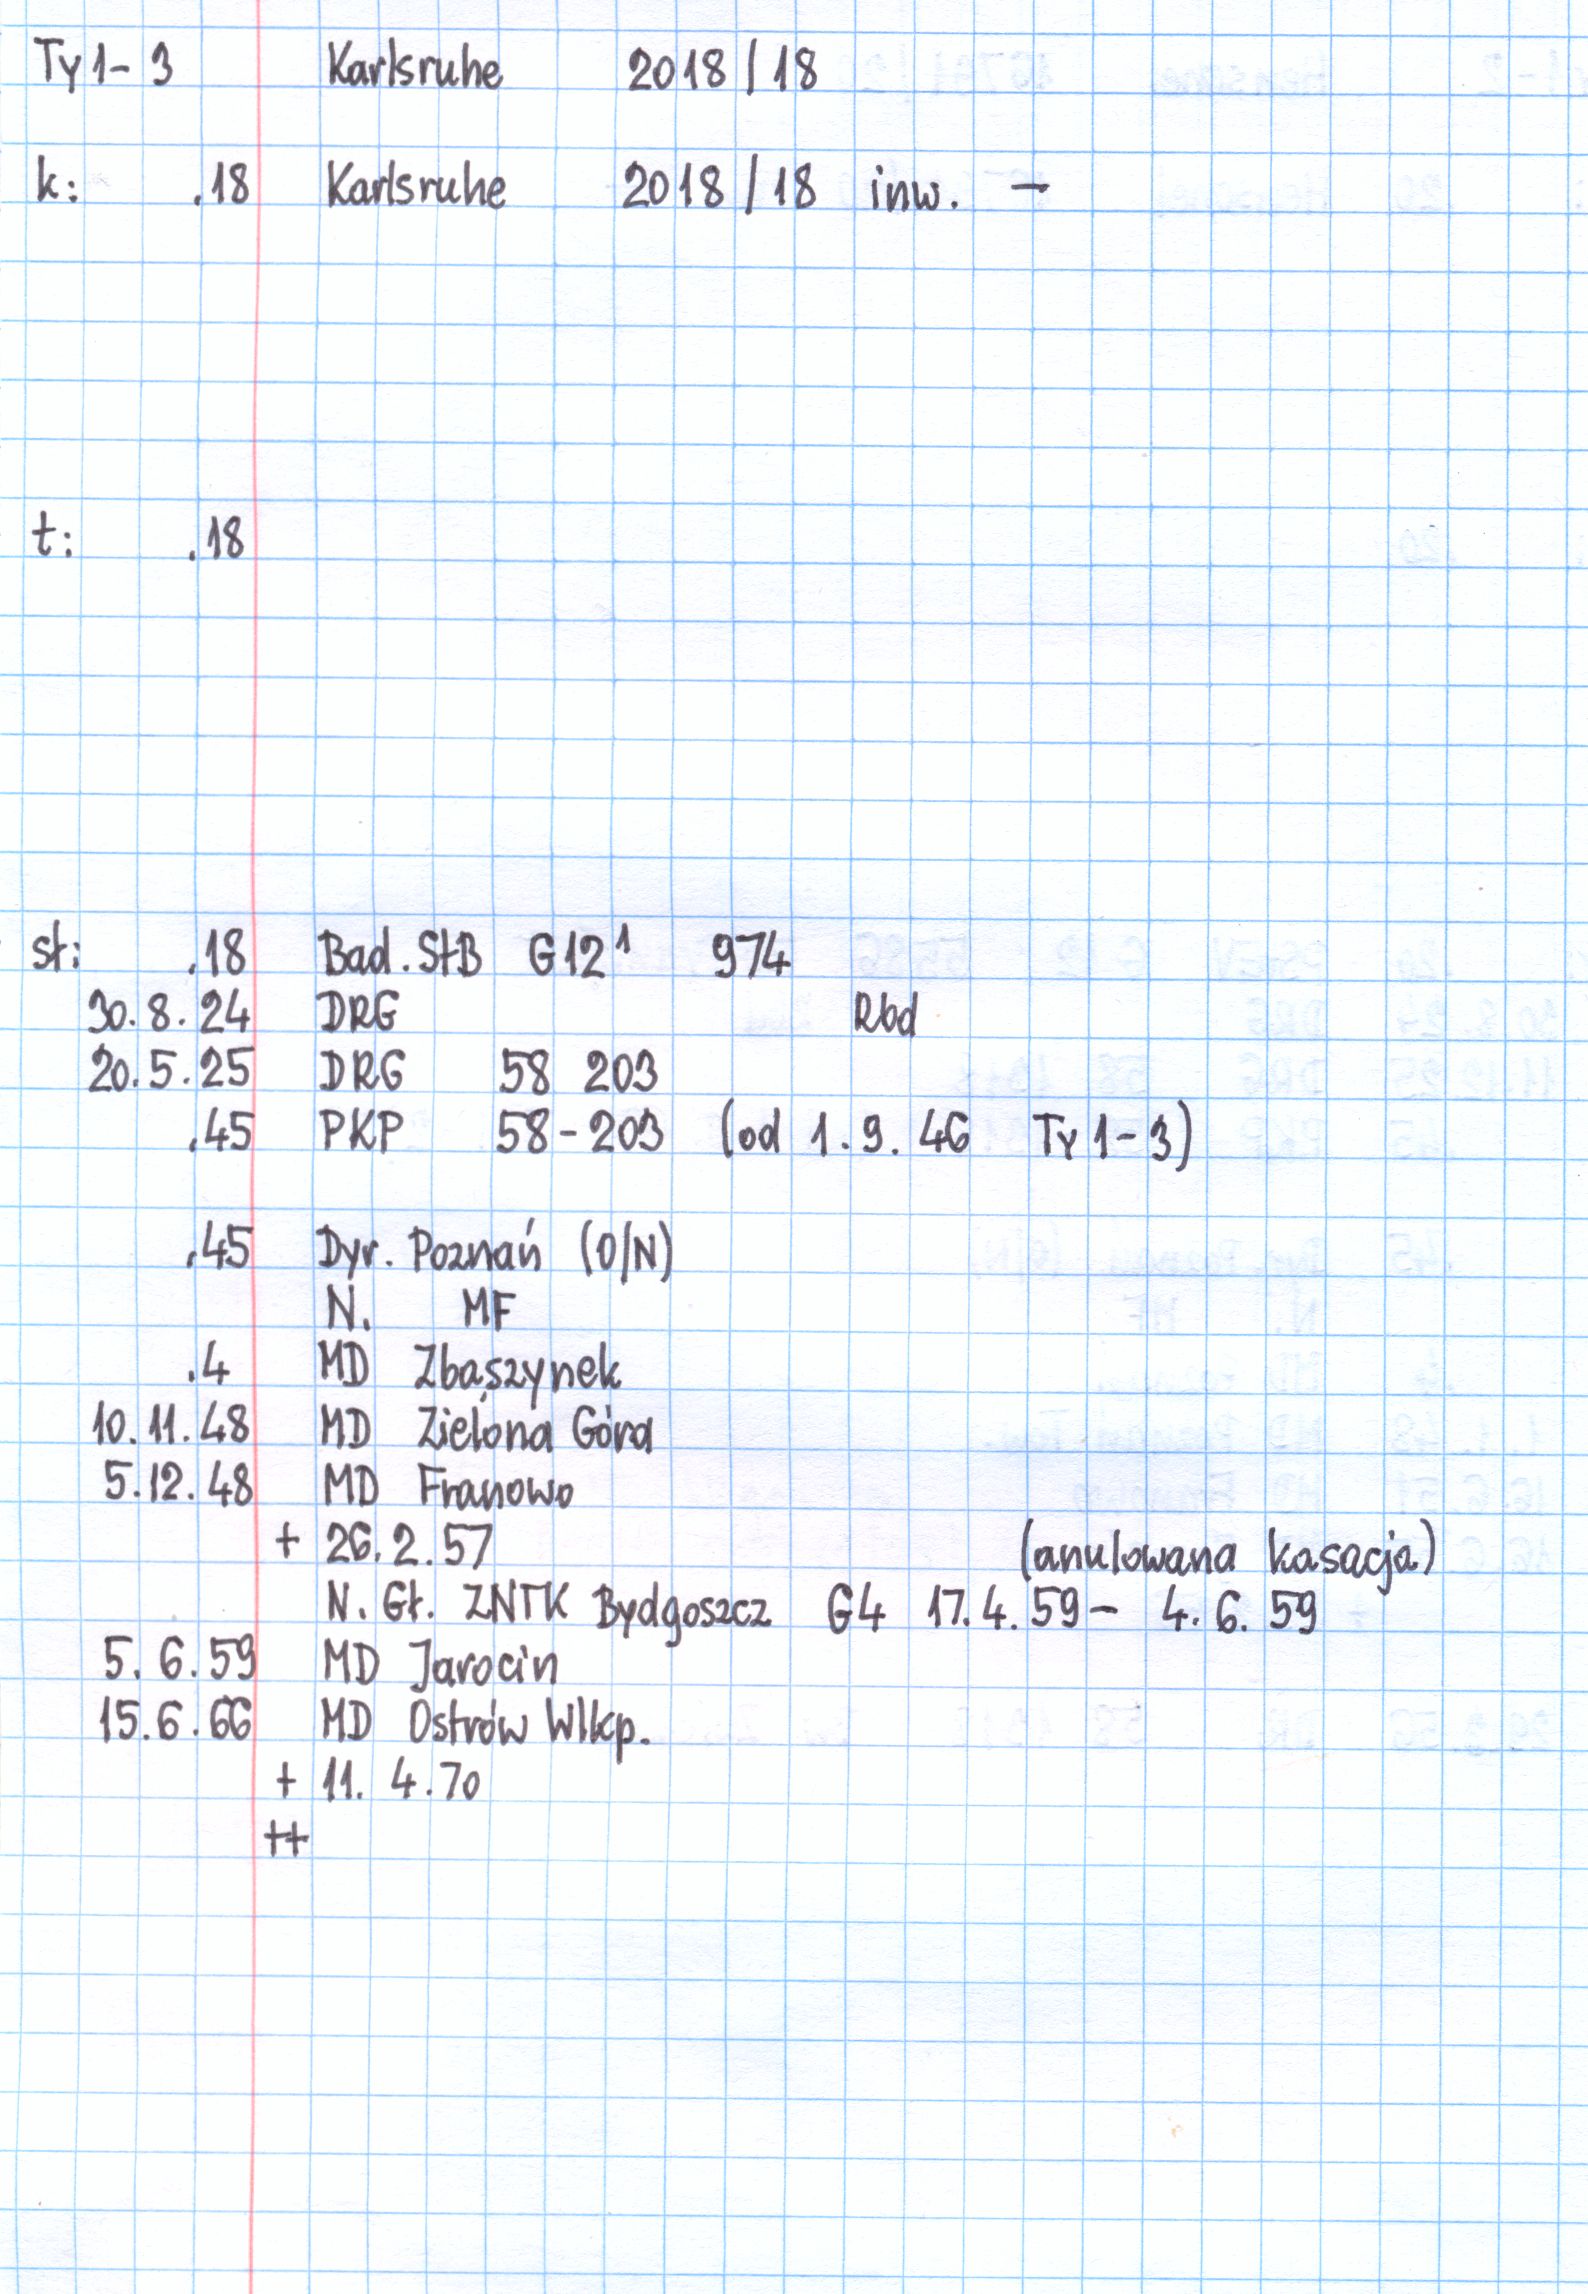 Ty1-3 Karlsruhe 2018/18
k: .18 Karlsruhe 2018/18 inw. –
t: .18
st: .18 Bad.StB G12¹ 974
30.8.24 DRG Rbd
20.5.25 DRG 58 203
.45 PKP 58-203 (od 1.9.46 Ty1-3)
.45 Dyr. Poznań (O/N)
N. MF
.4 MD Zbąszynek
10.11.48 MD Zielona Góra
5.12.48 MD Franowo
+ 26.2.57 (anulowana kasacja)
N. Gł. ZNTK Bydgoszcz G4 17.4.59 – 4.6.59
5.6.59 MD Jarocin
15.6.66 MD Ostrów Wlkp.
+ 11.4.70
++